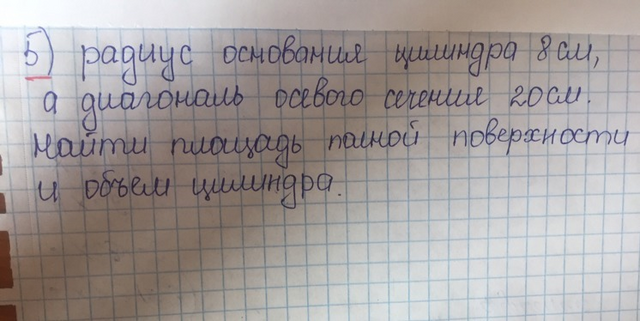 5) радиус основания цилиндра 8 см,
а диагональ осевого сечения 20 см.
Найти площадь полной поверхности
и объем цилиндра.